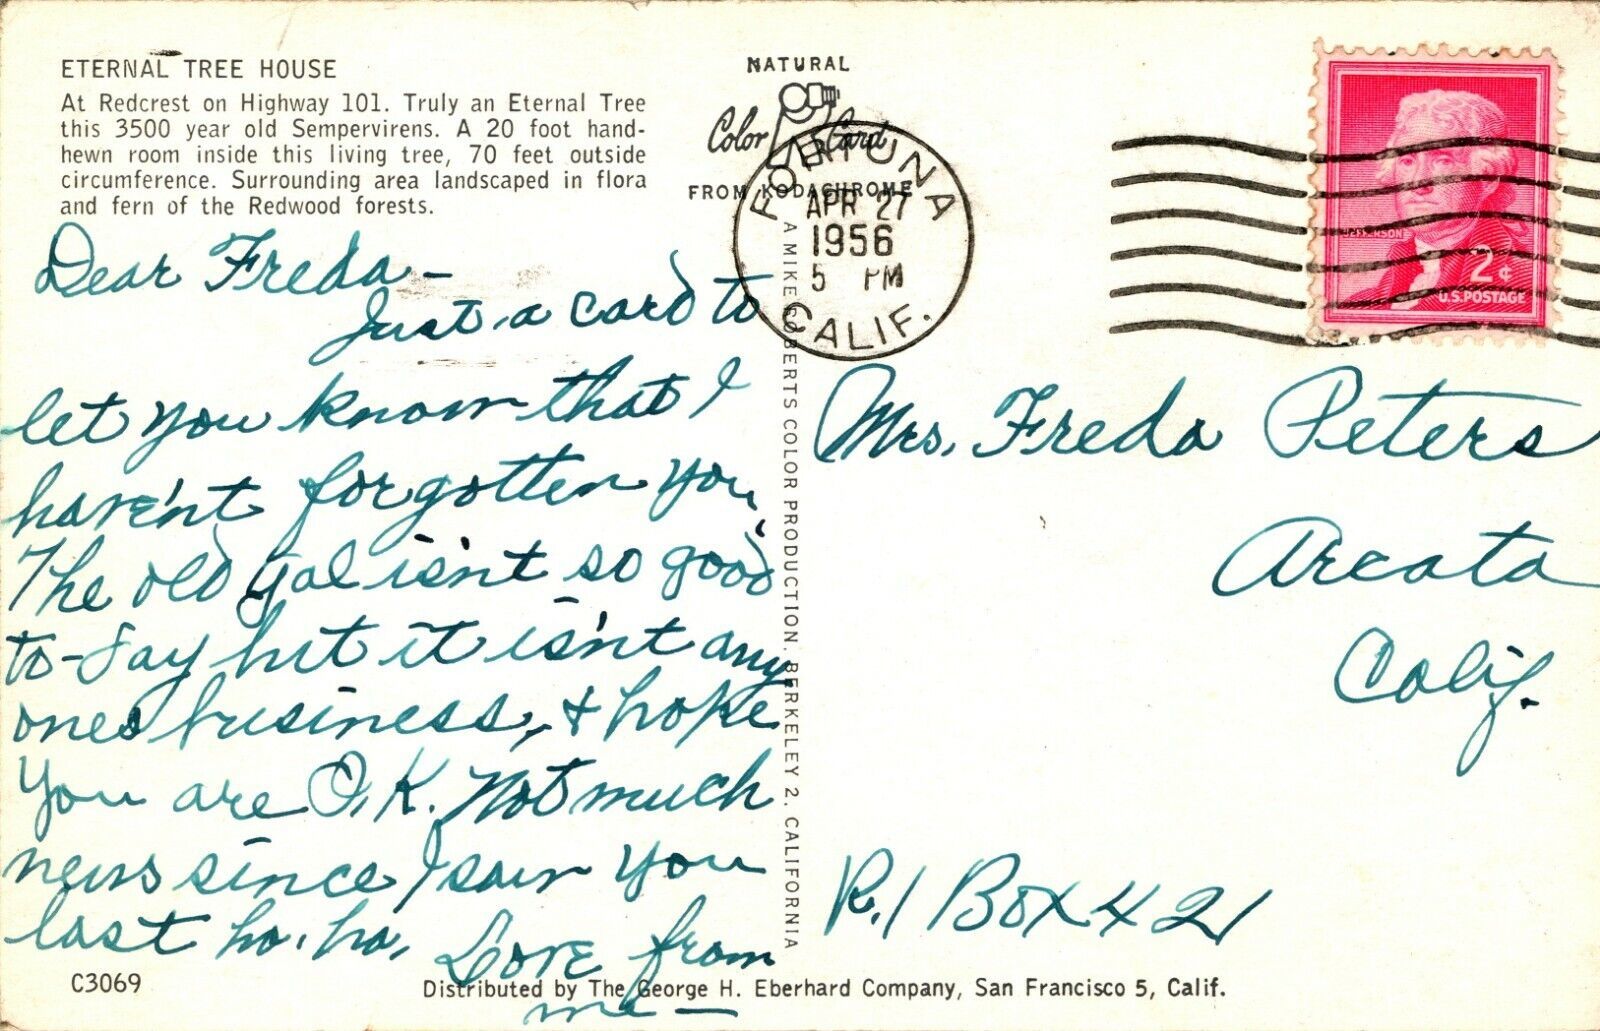 ETERNAL TREE HOUSE
At Redcrest on Highway 101. Truly an Eternal Tree
this 3500 year old Sempervirens. A 20 foot hand-
hewn room inside this living tree, 70 feet outside
circumference. Surrounding area landscaped in flora
and fern of the Redwood forests.
Dear Freda –
Just a card to
let you know that I
haven't forgotten you.
The old gal isn't so good
to-day but it isn't any
ones business, & hope
you are O.K. Not much
news since I saw you
last ha. ha.
Love from
me –
C3069
Distributed by The George H. Eberhard Company, San Francisco 5, Calif.
NATURAL
Color Card
FROM KODACHROME
A MIKE ROBERTS COLOR PRODUCTION. BERKELEY 2. CALIFORNIA
FORTUNA
APR 27
1956
5 PM
CALIF.
JEFFERSON
2¢
U.S. POSTAGE
Mrs. Freda Peters
Arcata
Calif.
R.1 Box 421